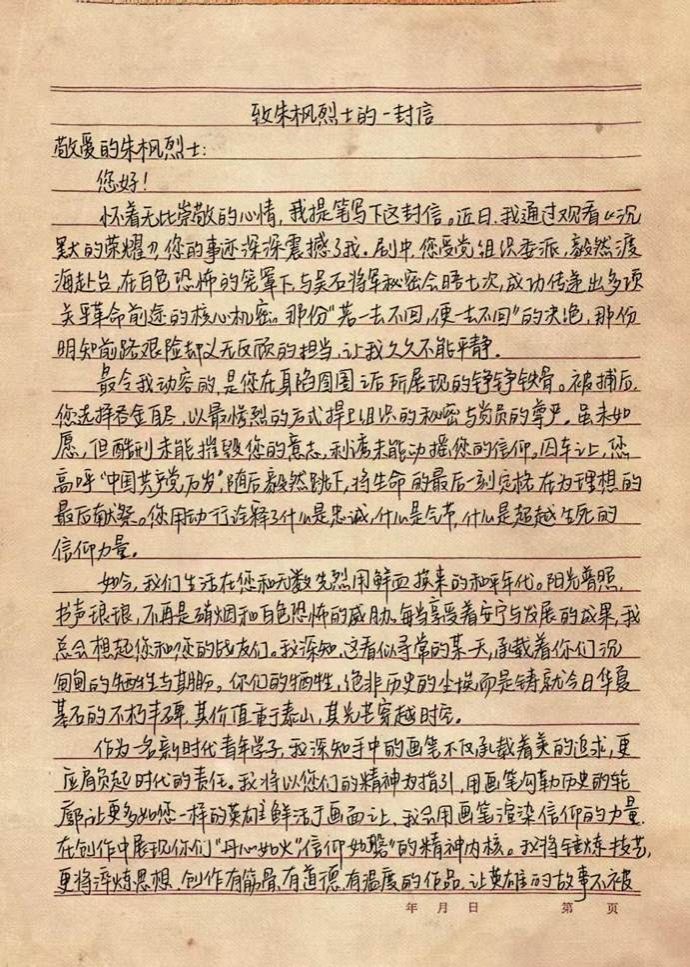 致朱枫烈士的一封信
敬爱的朱枫烈士：
您好！
怀着无比崇敬的心情，我提笔写下这封信。近日，我通过观看《沉
默的荣耀》，您的事迹深深震撼了我。剧中，您受党组织委派，毅然渡
海赴台，在白色恐怖的笼罩下，与吴石将军秘密会晤七次，成功传递出多项
关乎革命前途的核心机密。那份“若一去不回，便一去不回”的决绝，那份
明知前路艰险却义无反顾的担当，让我久久不能平静。
最令我动容的，是您在身陷囹圄之后所展现的铮铮铁骨。被捕后，
您选择吞金自尽，以最惨烈的方式捍卫组织的秘密与党员的尊严。虽未如
愿，但酷刑未能摧毁您的意志，利诱未能动摇您的信仰。囚车上，您
高呼“中国共产党万岁”，随后毅然跳下，将生命的最后一刻定格在为理想的
最后献祭。您用动行诠释了什么是忠诚，什么是气节，什么是超越生死的
信仰力量。
如今，我们生活在您和无数先烈用鲜血换来的和平年代。阳光普照，
书声琅琅，不再是硝烟和白色恐怖的威胁。每当享受着安宁与发展的成果，我
总会想起您和您的战友们。我深知，这看似寻常的某天，承载着你们沉
甸甸的牺牲与期盼。你们的牺牲，绝非历史的尘埃而是铸就今日华夏
基石的不朽丰碑，其价值重于泰山，其光芒穿越时空。
作为一名新时代青年学子，我深知手中的画笔不仅承载着美的追求，更
应肩负起时代的责任。我将以您们的精神为指引，用画笔勾勒历史的轮
廓，让更多如您一样的英雄鲜活于画面上，我会用画笔渲染信仰的力量，
在创作中展现你们“丹心如火”“信仰如磐”的精神内核。我将锤炼技艺，
更将淬炼思想，创作有筋骨、有道德、有温度的作品，让英雄的故事不被
年 月 日 第 页